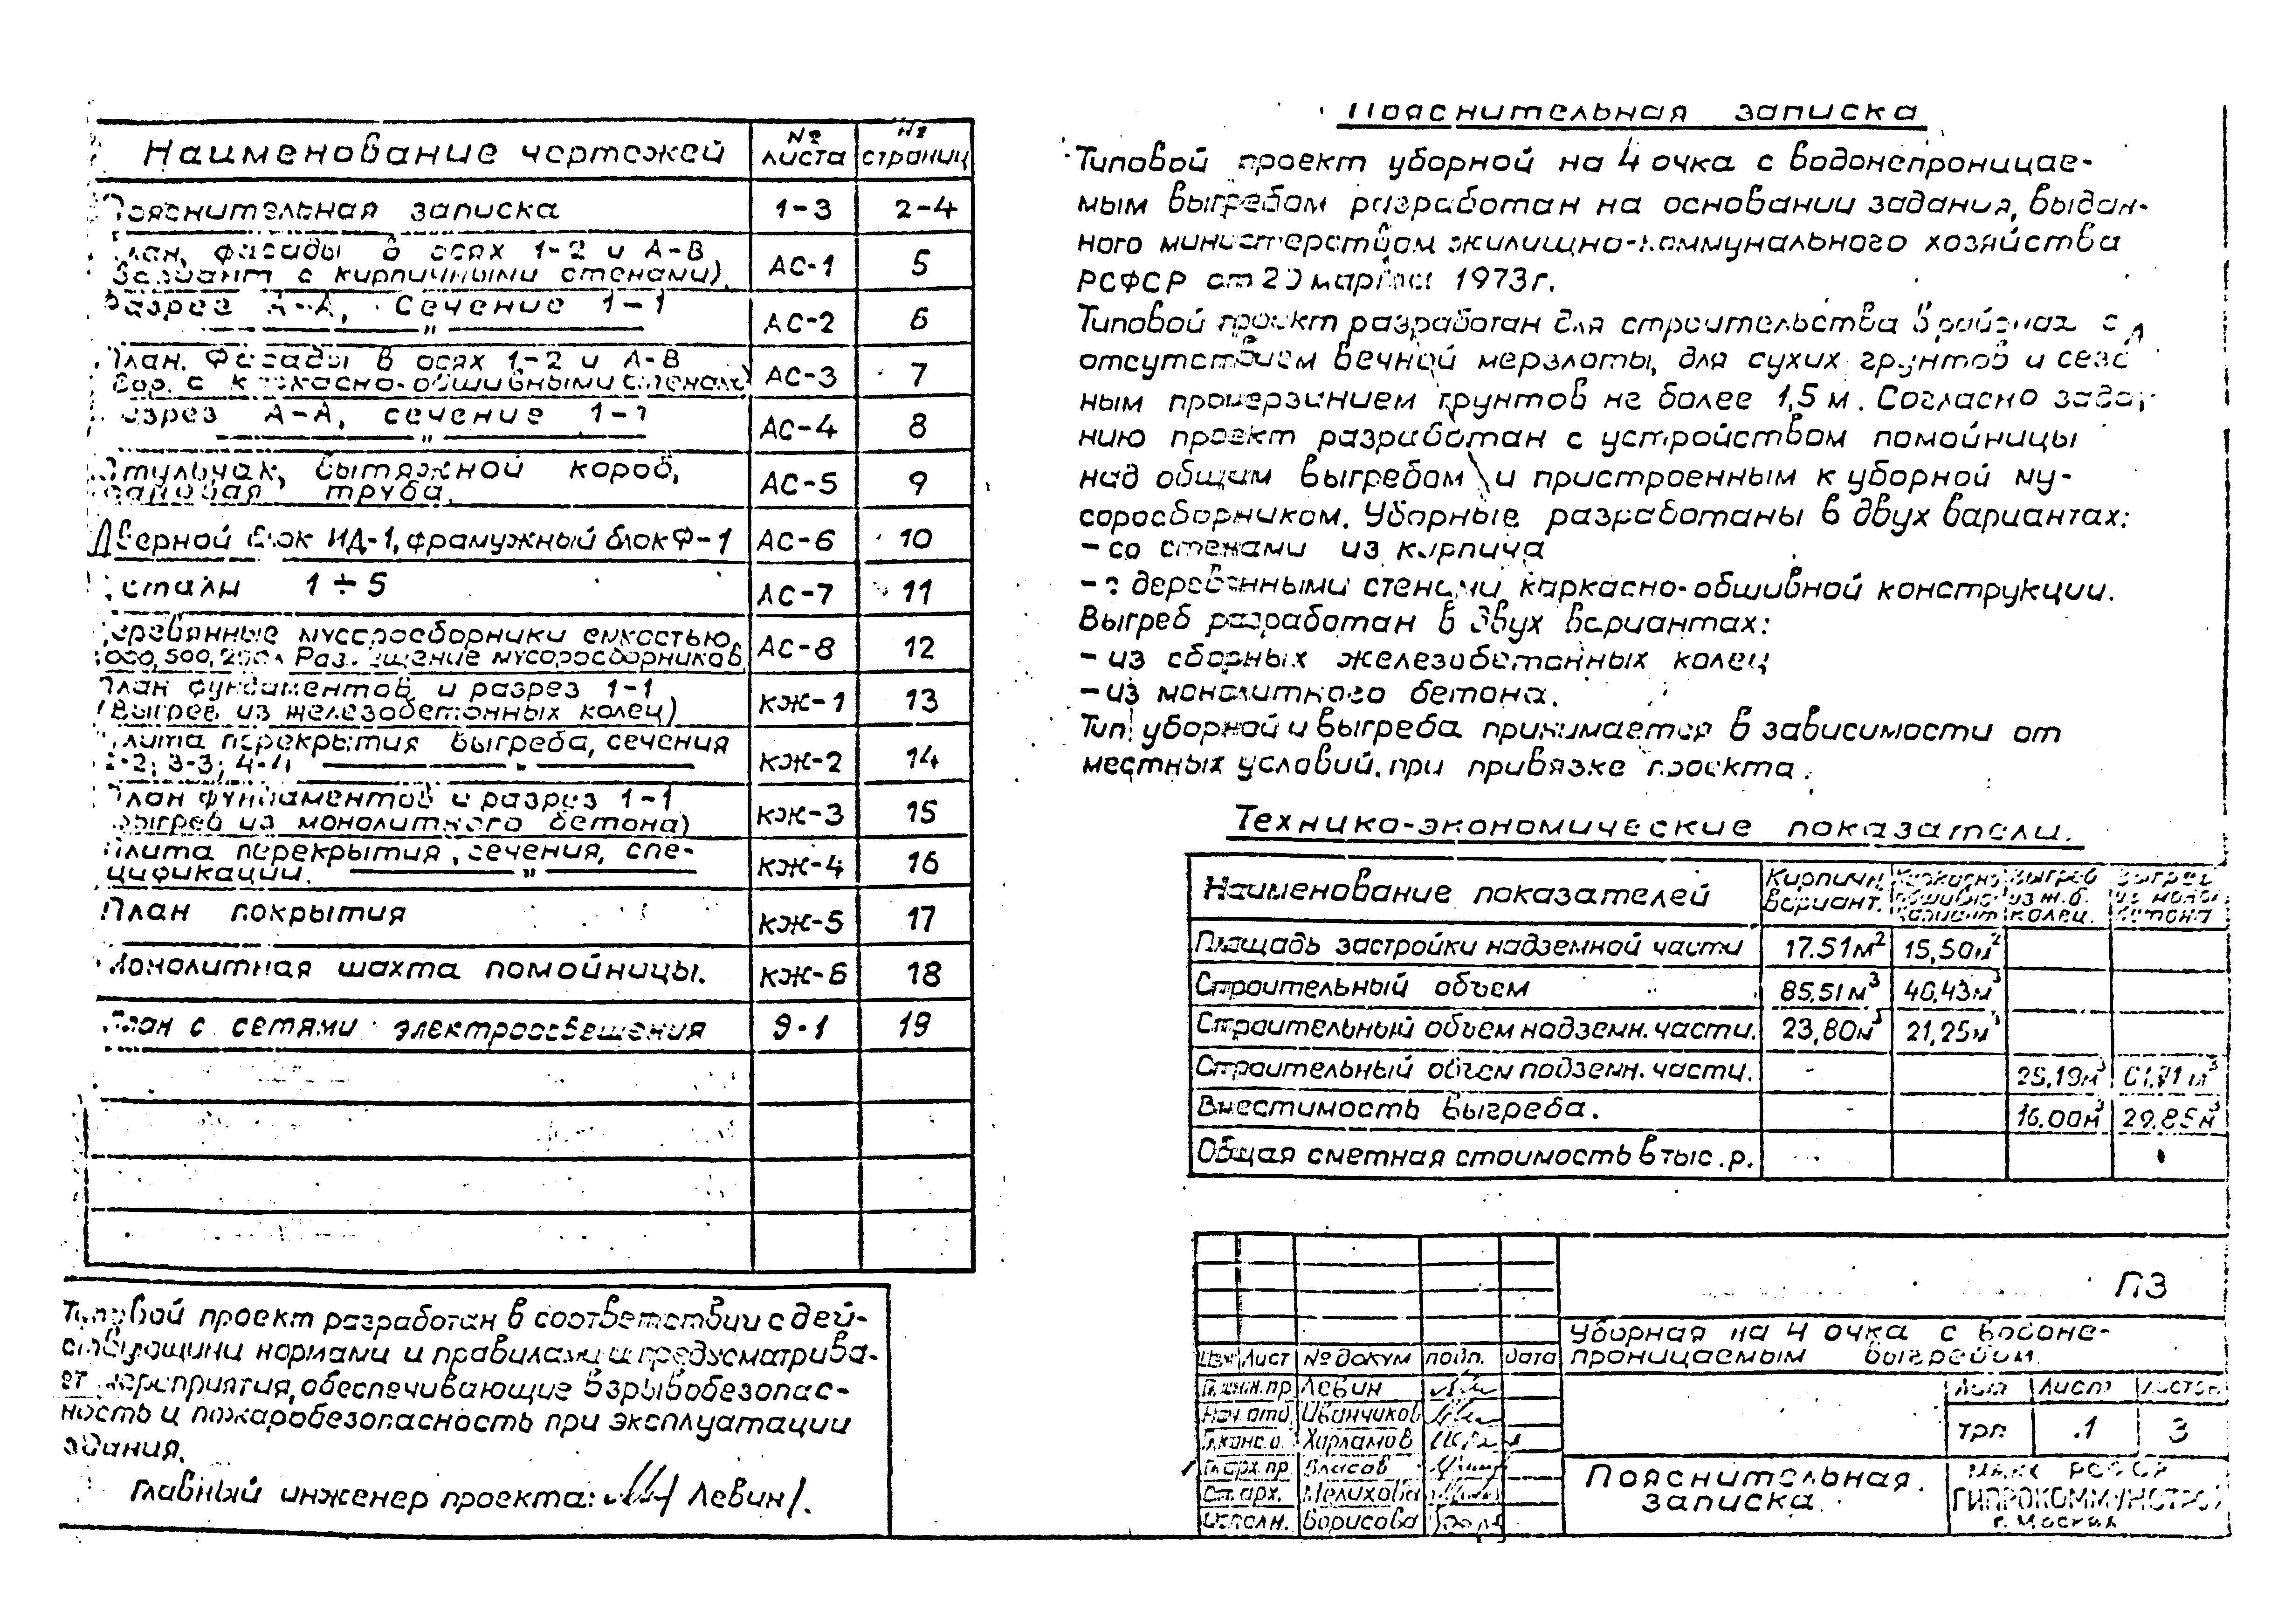 Наименование чертежей № листа № страниц
Пояснительная записка 1-3 2-4
План, фасады в осях 1-2 и А-В
Вариант с кирпичными стенами). АС-1 5
Разрез А-А, Сечение 1-1
" АС-2 6
План. Фасады в осях 1-2 и А-В
Вар. с каркасно-обшивными стенами АС-3 7
Разрез А-А, сечение 1-1
" АС-4 8
Стульчак, вытяжной короб,
труба. АС-5 9
Дверной блок ИД-1, фрамужный блок Ф-1 АС-6 10
Детали 1÷5 АС-7 11
Деревянные мусоросборники емкостью
500, Размещение мусоросборников АС-8 12
План фундаментов и разрез 1-1
(Выгреб из железобетонных колец) КЖ-1 13
Плита перекрытия выгреба, сечения
2-2; 3-3; 4-4 " КЖ-2 14
План фундаментов и разрез 1-1
выгреб из монолитного бетона) КЖ-3 15
Плита перекрытия, сечения, спе-
цификации. " КЖ-4 16
План покрытия КЖ-5 17
Монолитная шахта помойницы. КЖ-6 18
План с сетями электроосвещения Э-1 19
Типовой проект разработан в соответствии с дей-
ствующими нормами и правилами и предусматрива-
ет мероприятия, обеспечивающие взрывобезопас-
ность и пожаробезопасность при эксплуатации
здания.
Главный инженер проекта: /Левин/.
Пояснительная записка
Типовой проект уборной на 4 очка с водонепроницае-
мым выгребом разработан на основании задания, выдан-
ного министерством жилищно-коммунального хозяйства
РСФСР от 20 марта 1973г.
Типовой проект разработан для строительства в районах с
отсутствием вечной мерзлоты, для сухих грунтов и сезо
ным промерзанием грунтов не более 1,5 м. Согласно зада-
нию проект разработан с устройством помойницы
над общим выгребом и пристроенным к уборной му-
соросборником. Уборные разработаны в двух вариантах:
- со стенами из кирпича
- с деревянными стенами каркасно-обшивной конструкции.
Выгреб разработан в двух вариантах:
- из сборных железобетонных колец
- из монолитного бетона.
Тип уборной и выгреба принимается в зависимости от
местных условий. при привязке проекта.
Технико-экономические показатели.
Наименование показателей Кирпичн. вариант. Каркасно обшивно вариант Выгреб из ж.б. колец. Выгреб из моно. бетона
Площадь застройки надземной части 17.51м² 15,50м²
Строительный объем 85,51м³ 46,43м³
Строительный объем надземн. части. 23,80м³ 21,25м³
Строительный объем подземн. части. - 25,19м³ 61,71м³
Вместимость выгреба. - 16.00м³ 29.85м³
Общая сметная стоимость в тыс. р.
ПЗ
Уборная на 4 очка с водоне-
проницаемым выгребом.
Изм Лист № докум подп. дата
Гл.инж.пр Левин
Нач.отд. Иванчиков
Гл.конс.о. Харламов
Гл.арх.пр. Власов
Ст.арх. Мелихова
Исполн. Борисова
Лит Лист Листов
ТРП 1 3
Пояснительная
записка.
МЖКХ РСФСР
ГИПРОКОММУНСТРОЙ
г. Москва